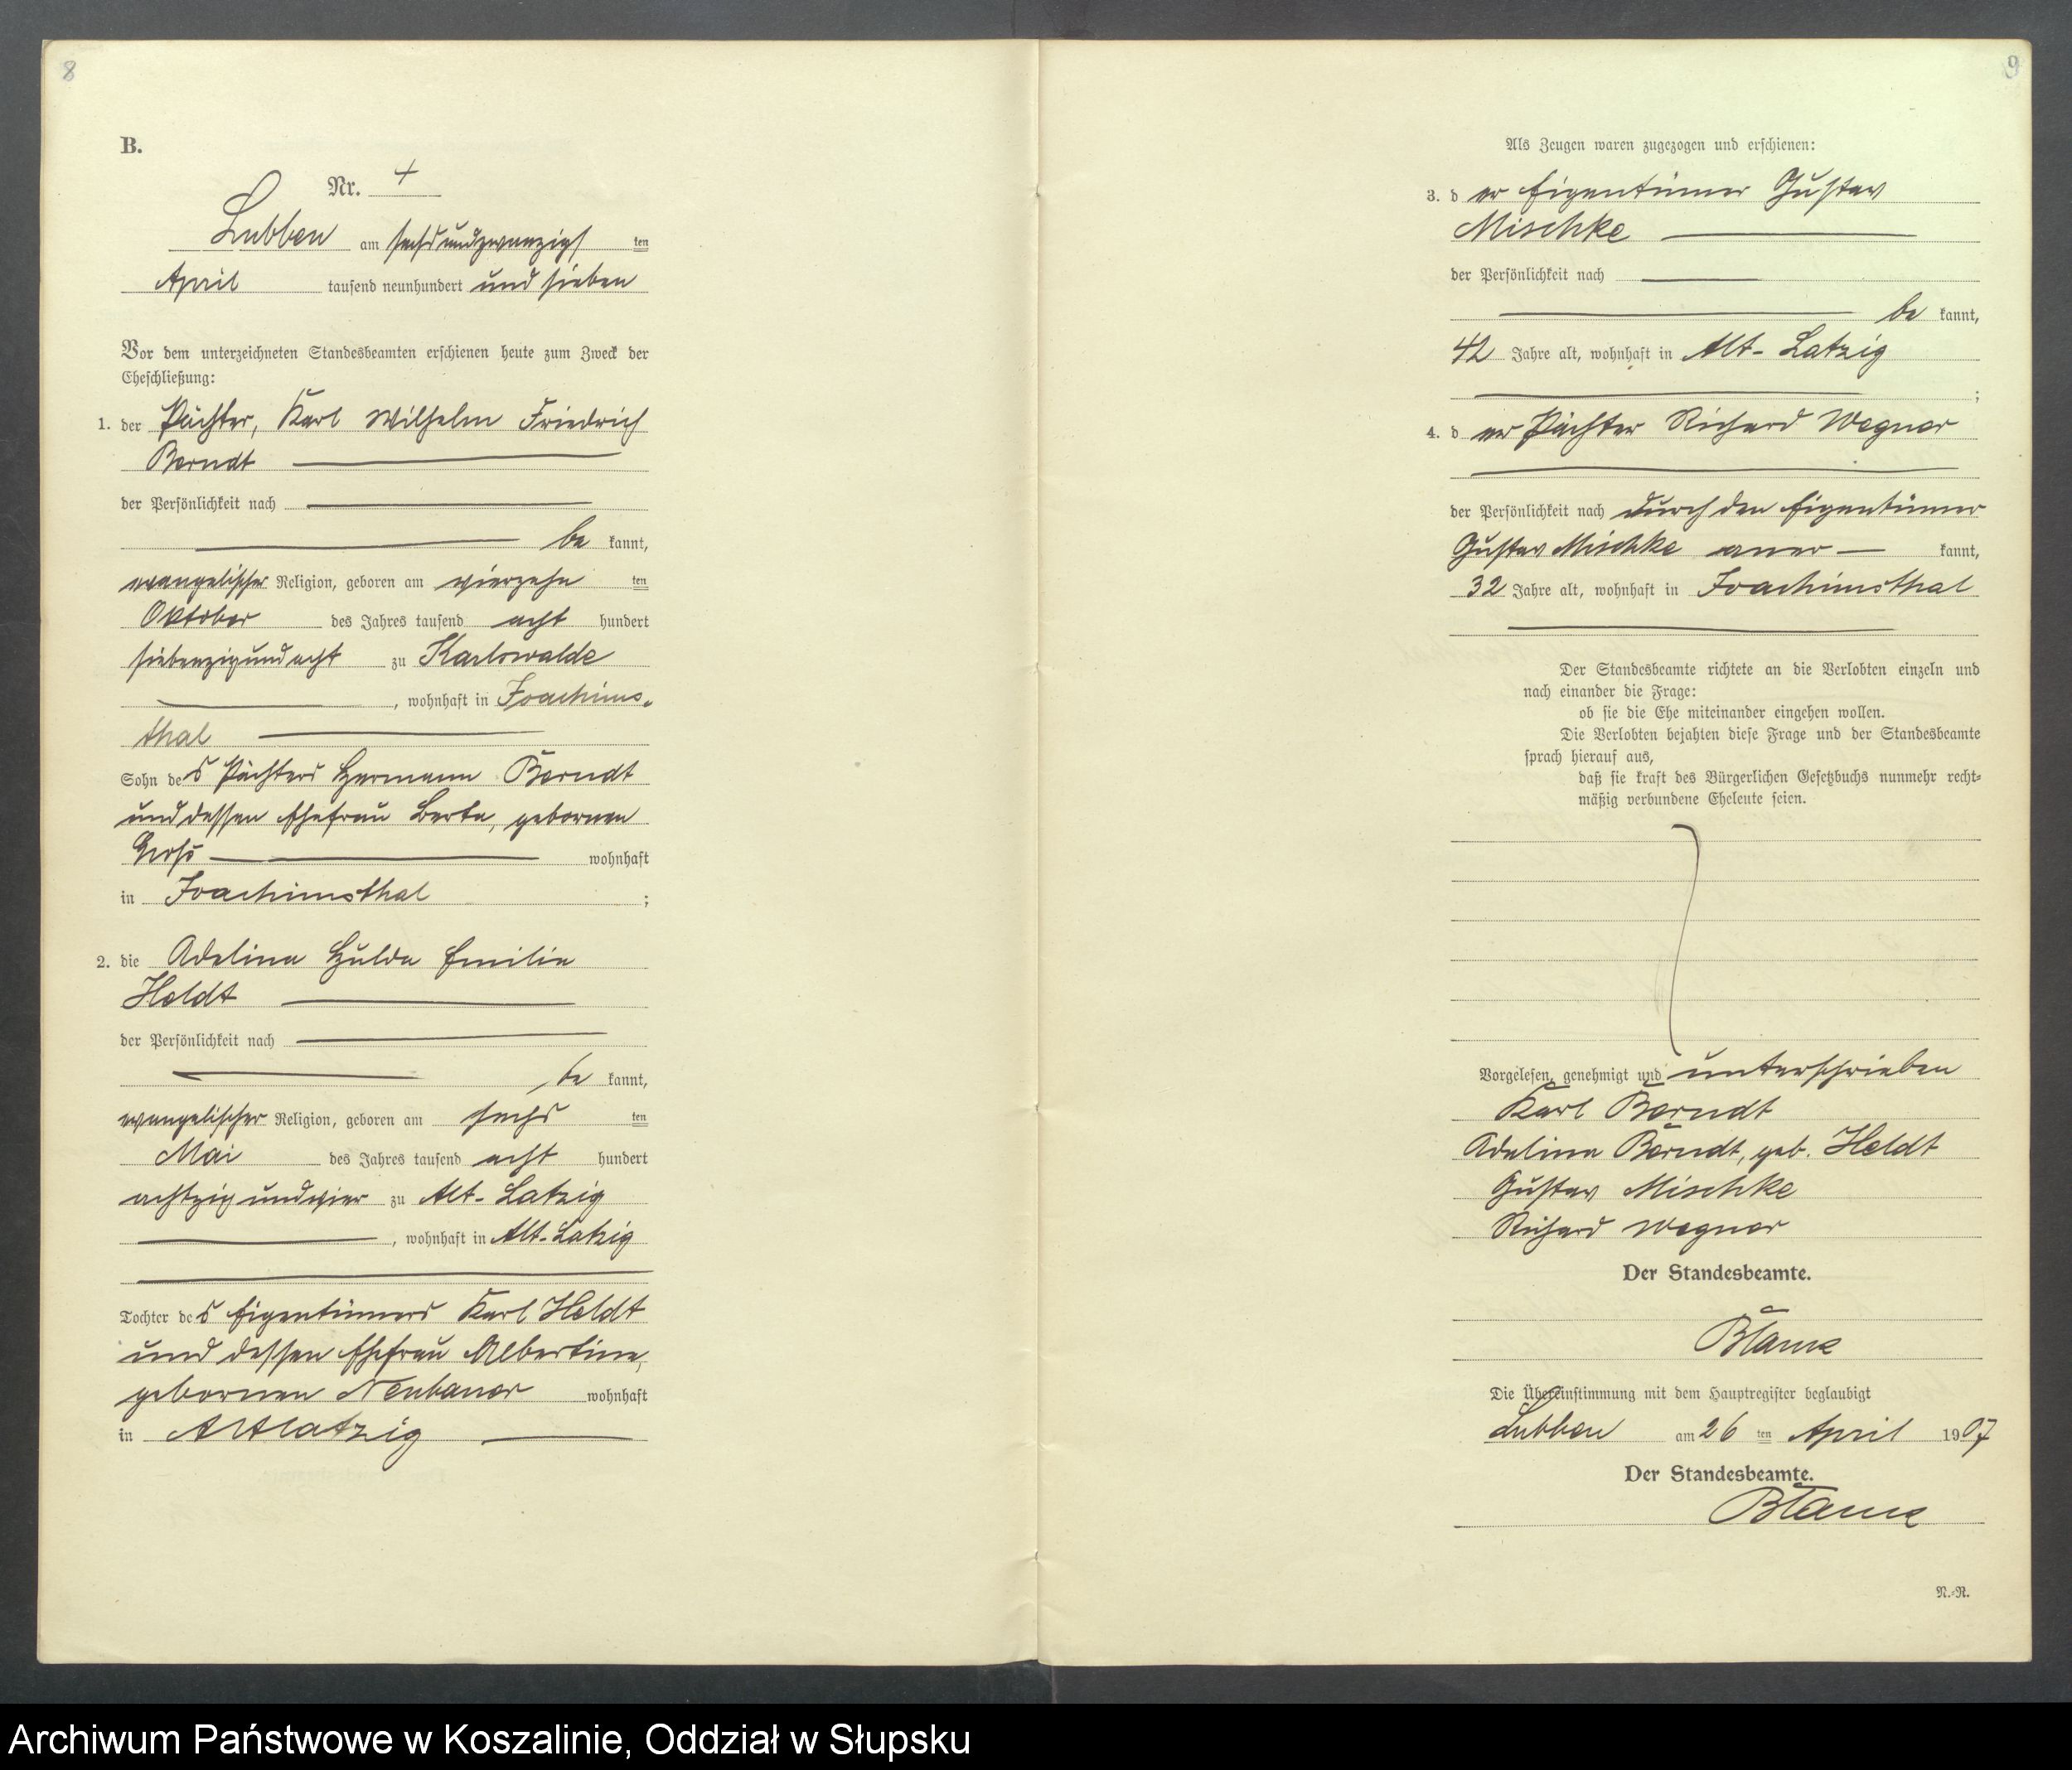 8
B.
Nr. 4
Lubben am sechsundzwanzigsten
April tausend neunhundert und sieben
Vor dem unterzeichneten Standesbeamten erschienen heute zum Zweck der
Eheschließung:
1. der Pächter, Karl Wilhelm Friedrich
Berndt
der Persönlichkeit nach
be kannt,
evangelischer Religion, geboren am vierzehn ten
Oktober des Jahres tausend acht hundert
siebenzigundacht zu Karlswalde
, wohnhaft in Joachims-
thal
Sohn des Pächters Hermann Berndt
und dessen Ehefrau Berta, gebornen
Groß wohnhaft
in Joachimsthal ;
2. die Adeline Hulda Emilie
Heldt
der Persönlichkeit nach
be kannt,
evangelischer Religion, geboren am sechs ten
Mai des Jahres tausend acht hundert
achtzigundvier zu Alt-Latzig
, wohnhaft in Alt-Latzig
Tochter des Eigentümers Karl Heldt
und dessen Ehefrau Albertine,
gebornen Neubauer wohnhaft
in Altlatzig
9
Als Zeugen waren zugezogen und erschienen:
3. der Eigentümer Gustav
Mischke
der Persönlichkeit nach
be kannt,
42 Jahre alt, wohnhaft in Alt-Latzig
;
4. der Pächter Richard Wegner
der Persönlichkeit nach durch den Eigentümer
Gustav Mischke aner- kannt,
32 Jahre alt, wohnhaft in Joachimsthal
Der Standesbeamte richtete an die Verlobten einzeln und
nach einander die Frage:
ob sie die Ehe miteinander eingehen wollen.
Die Verlobten bejahten diese Frage und der Standesbeamte
sprach hierauf aus,
daß sie kraft des Bürgerlichen Gesetzbuchs nunmehr recht-
mäßig verbundene Eheleute seien.
Vorgelesen, genehmigt und unterschrieben
Karl Berndt
Adeline Berndt, geb. Heldt
Gustav Mischke
Richard Wegner
Der Standesbeamte.
Die Übereinstimmung mit dem Hauptregister beglaubigt
Lubben am 26 ten April 1907
Der Standesbeamte.
N.-R.
Archiwum Państwowe w Koszalinie, Oddział w Słupsku